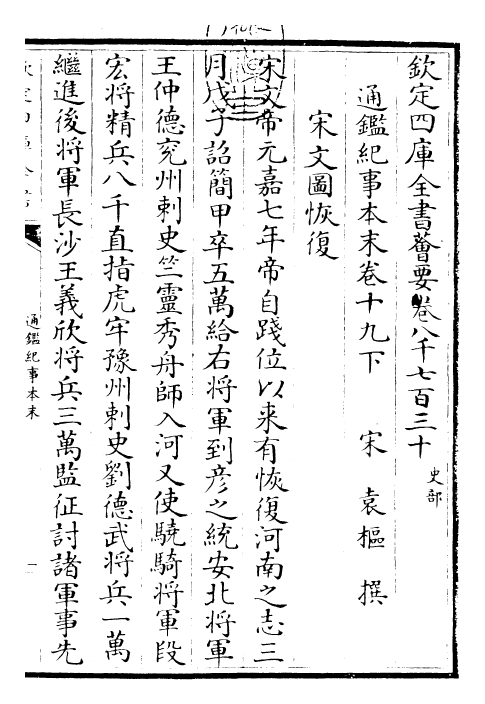 欽定四庫全書薈要卷八千七百三十 史部
通鑑紀事本末卷十九下 宋 袁樞 撰
宋文圖恢復
宋文帝元嘉七年帝自踐位以来有恢復河南之志三
月戊子詔簡甲卒五萬給右將軍到彦之統安北將軍
王仲德兖州刺史竺靈秀舟師入河又使驍騎將軍段
宏将精兵八千直指虎牢豫州刺史劉德武将兵一萬
繼進後将軍長沙王義欣将兵三萬監征討諸軍事先
通鑑紀事本末
一